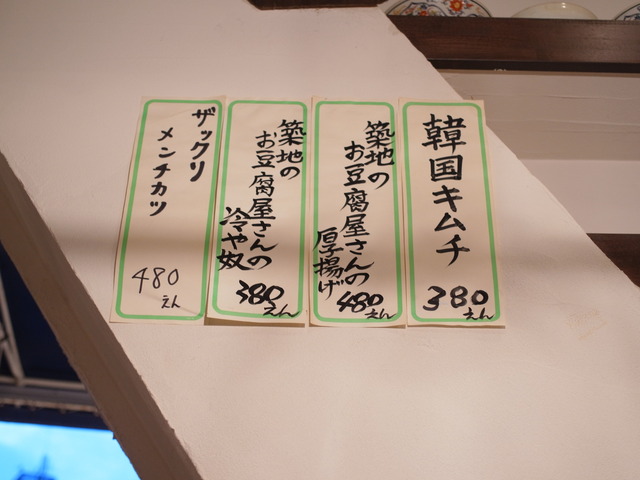 韓国キムチ
380
えん
築地の
お豆腐屋さんの
厚揚げ
480
えん
築地の
お豆腐屋さんの
冷や奴
380
えん
ザックリ
メンチカツ
480
えん